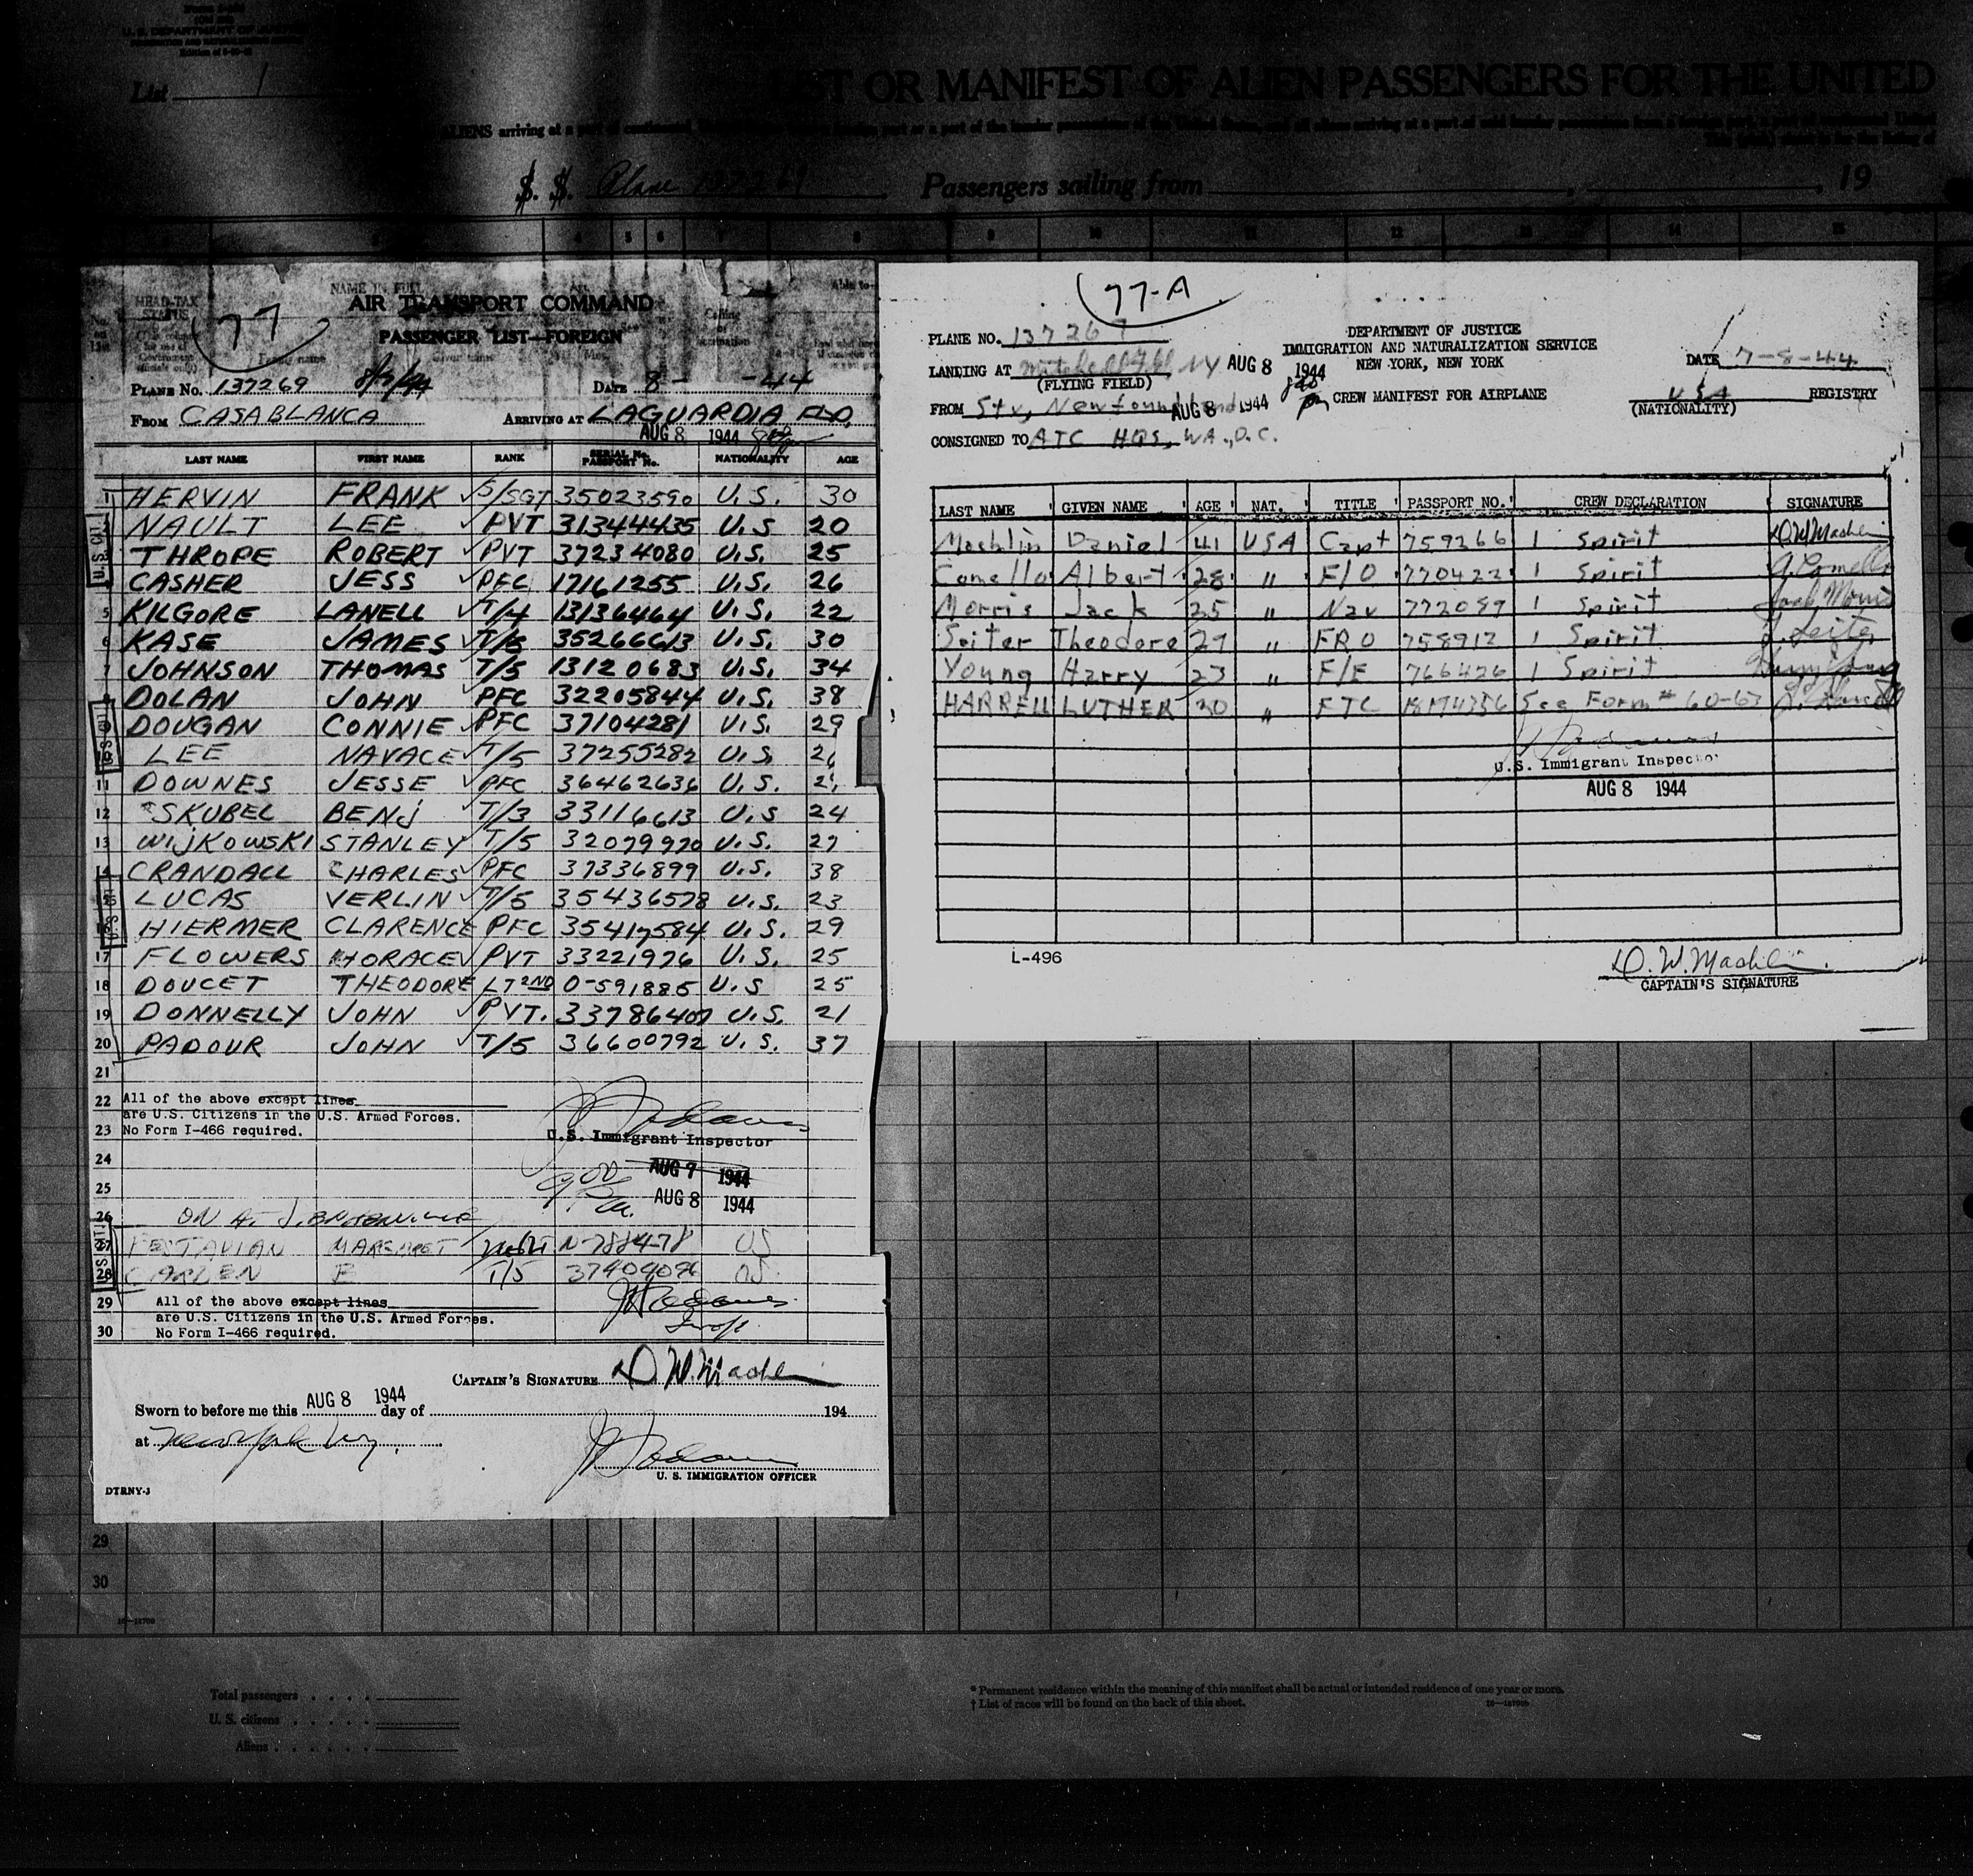 U.S. DEPARTMENT OF JUSTICE
List 1
LIST OR MANIFEST OF ALIEN PASSENGERS FOR THE UNITED
ALIENS arriving at a port of continental
S. S. Plane 137269 Passengers sailing from , 19
77
AIR TRANSPORT COMMAND
PASSENGER LIST—FOREIGN
PLANE No. 137269 8/7/44 DATE 8- -44
FROM CASABLANCA ARRIVING AT LAGUARDIA FLD.
AUG 8 1944
LAST NAME FIRST NAME RANK SERIAL No. PASSPORT No. NATIONALITY AGE
1 HERVIN FRANK S/SGT 35023590 U.S. 30
2 NAULT LEE PVT 31344435 U.S 20
3 THROPE ROBERT PVT 37234080 U.S. 25
4 CASHER JESS PFC 17161255 U.S. 26
5 KILGORE LANELL T/4 13136464 U.S. 22
6 KASE JAMES T/5 35266613 U.S. 30
7 JOHNSON THOMAS T/5 13120683 U.S. 34
8 DOLAN JOHN PFC 32205844 U.S. 38
9 DOUGAN CONNIE PFC 37104281 U.S. 29
10 LEE NAVACE T/5 37255282 U.S.
11 DOWNES JESSE PFC 36462636 U.S.
12 SKUBEL BENJ T/3 33116613 U.S 24
13 WIJKOWSKI STANLEY T/5 32079970 U.S. 27
14 CRANDALL CHARLES PFC 37336899 U.S. 38
15 LUCAS VERLIN T/5 35436578 U.S. 23
16 HIERMER CLARENCE PFC 35417584 U.S. 29
17 FLOWERS HORACE PVT 33221976 U.S. 25
18 DOUCET THEODORE LT 2ND O-591885 U.S 25
19 DONNELLY JOHN PVT. 33786407 U.S. 21
20 PADOUR JOHN T/5 36600792 U.S. 37
21
22 All of the above except lines
are U.S. Citizens in the U.S. Armed Forces.
23 No Form I-466 required.
U.S. Immigrant Inspector
24 AUG 7 1944
25 AUG 8 1944
26 ON AT
27 MARGARET N-788478 US
28 E T/5 37404096 US
29 All of the above except lines
are U.S. Citizens in the U.S. Armed Forces.
30 No Form I-466 required.
CAPTAIN'S SIGNATURE D.W. Machlin
Sworn to before me this AUG 8 1944 day of 194
at New York N.Y.
U. S. IMMIGRATION OFFICER
DTRNY-J
29
30
Total passengers
U. S. citizens
Aliens
77-A
PLANE NO. 137269
DEPARTMENT OF JUSTICE
IMMIGRATION AND NATURALIZATION SERVICE
NEW YORK, NEW YORK
DATE 7-8-44
LANDING AT Mitchell Fld, NY AUG 8 1944
(FLYING FIELD)
FROM Stv, Newfoundland AUG 8 1944 CREW MANIFEST FOR AIRPLANE USA REGISTRY
(NATIONALITY)
CONSIGNED TO ATC HQS, WA., D.C.
LAST NAME GIVEN NAME AGE NAT. TITLE PASSPORT NO. CREW DECLARATION SIGNATURE
Machlin Daniel 41 USA Capt 759366 1 Spirit D.W. Machlin
Comello Albert 28 " F/O 770422 1 Spirit A. Comello
Morris Jack 35 " Nav 772059 1 Spirit Jack Morris
Seiter Theodore 27 " FRO 758912 1 Spirit T. Seiter
Young Harry 23 " F/E 766426 1 Spirit Harry Young
HARRELL LUTHER 20 " FTC 18174356 See Form # 60-63
U.S. Immigrant Inspector
AUG 8 1944
L-496
D.W. Machlin
CAPTAIN'S SIGNATURE
* Permanent residence within the meaning of this manifest shall be actual or intended residence of one year or more.
† List of races will be found on the back of this sheet.